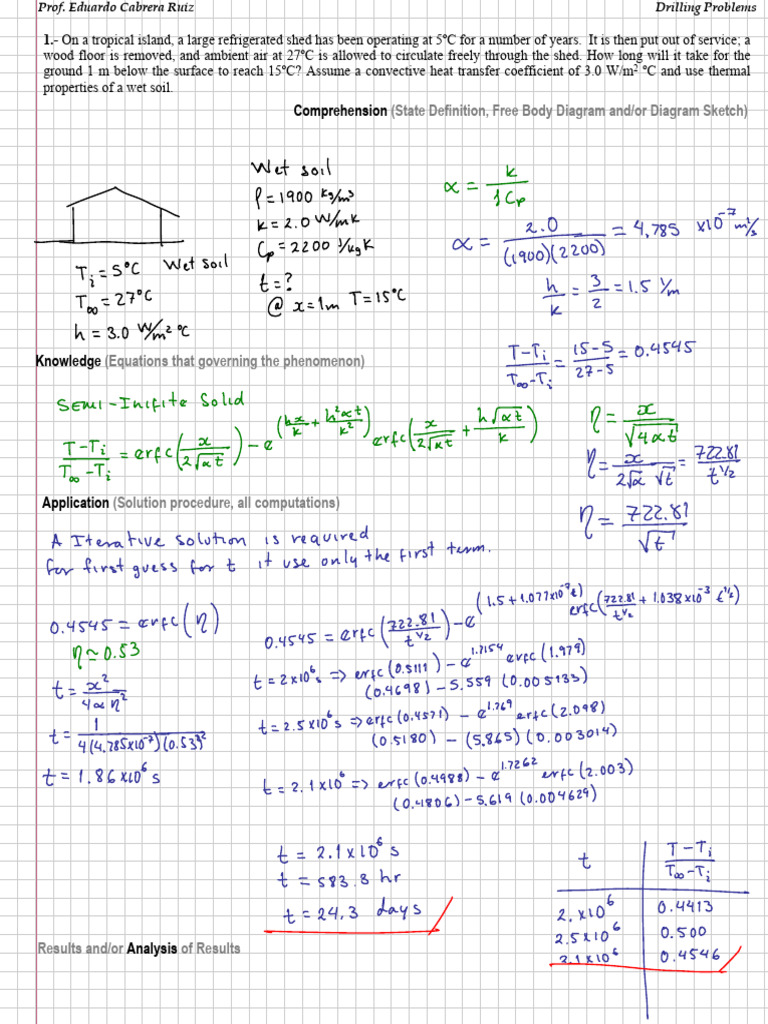 Prof. Eduardo Cabrera Ruiz
Drilling Problems
1.- On a tropical island, a large refrigerated shed has been operating at 5°C for a number of years. It is then put out of service; a
wood floor is removed, and ambient air at 27°C is allowed to circulate freely through the shed. How long will it take for the
ground 1 m below the surface to reach 15°C? Assume a convective heat transfer coefficient of 3.0 W/m² °C and use thermal
properties of a wet soil.
Comprehension (State Definition, Free Body Diagram and/or Diagram Sketch)
Wet soil
ρ = 1900 kg/m³
k = 2.0 W/mK
Cp = 2200 J/kgK
t = ?
@ x = 1m T = 15°C
Ti = 5°C Wet soil
T∞ = 27°C
h = 3.0 W/m² °C
α = k/ρCp
α = 2.0/(1900)(2200) = 4.785 x10⁻⁷ m²/s
h/k = 3/2 = 1.5 1/m
T-Ti/T∞-Ti = 15-5/27-5 = 0.4545
Knowledge (Equations that governing the phenomenon)
SEMI-Inifite Solid
T-Ti/T∞-Ti = erfc(x/2√αt) - e^(hx/k + h²αt/k²) erfc(x/2√αt + h√αt/k)
η = x/√4αt
η = x/2√α √t = 722.81/t^½
η = 722.81/√t
Application (Solution procedure, all computations)
A Iterative solution is required
for first guess for t it use only the first term.
0.4545 = erfc(η)
η ≃ 0.53
t = x²/4αη²
t = 1/4(4.785x10⁻⁷)(0.53)²
t = 1.86x10⁶ s
0.4545 = erfc(722.81/t^½) - e^(1.5 + 1.077x10⁻⁶t) erfc(722.81/t^½ + 1.038x10⁻³ t^½)
t = 2x10⁶ s => erfc(0.5111) - e^1.7154 erfc(1.979)
(0.4698) - 5.559 (0.005133)
t = 2.5x10⁶ s => erfc(0.4571) - e^1.769 erfc(2.098)
(0.5180) - (5.865)(0.003014)
t = 2.1x10⁶ => erfc(0.4988) - e^1.7262 erfc(2.003)
(0.4806) - 5.619 (0.004629)
t = 2.1x10⁶ s
t = 583.3 hr
t = 24.3 days
t T-Ti/T∞-Ti
2.x10⁶ 0.4413
2.5x10⁶ 0.500
2.1x10⁶ 0.4546
Results and/or Analysis of Results